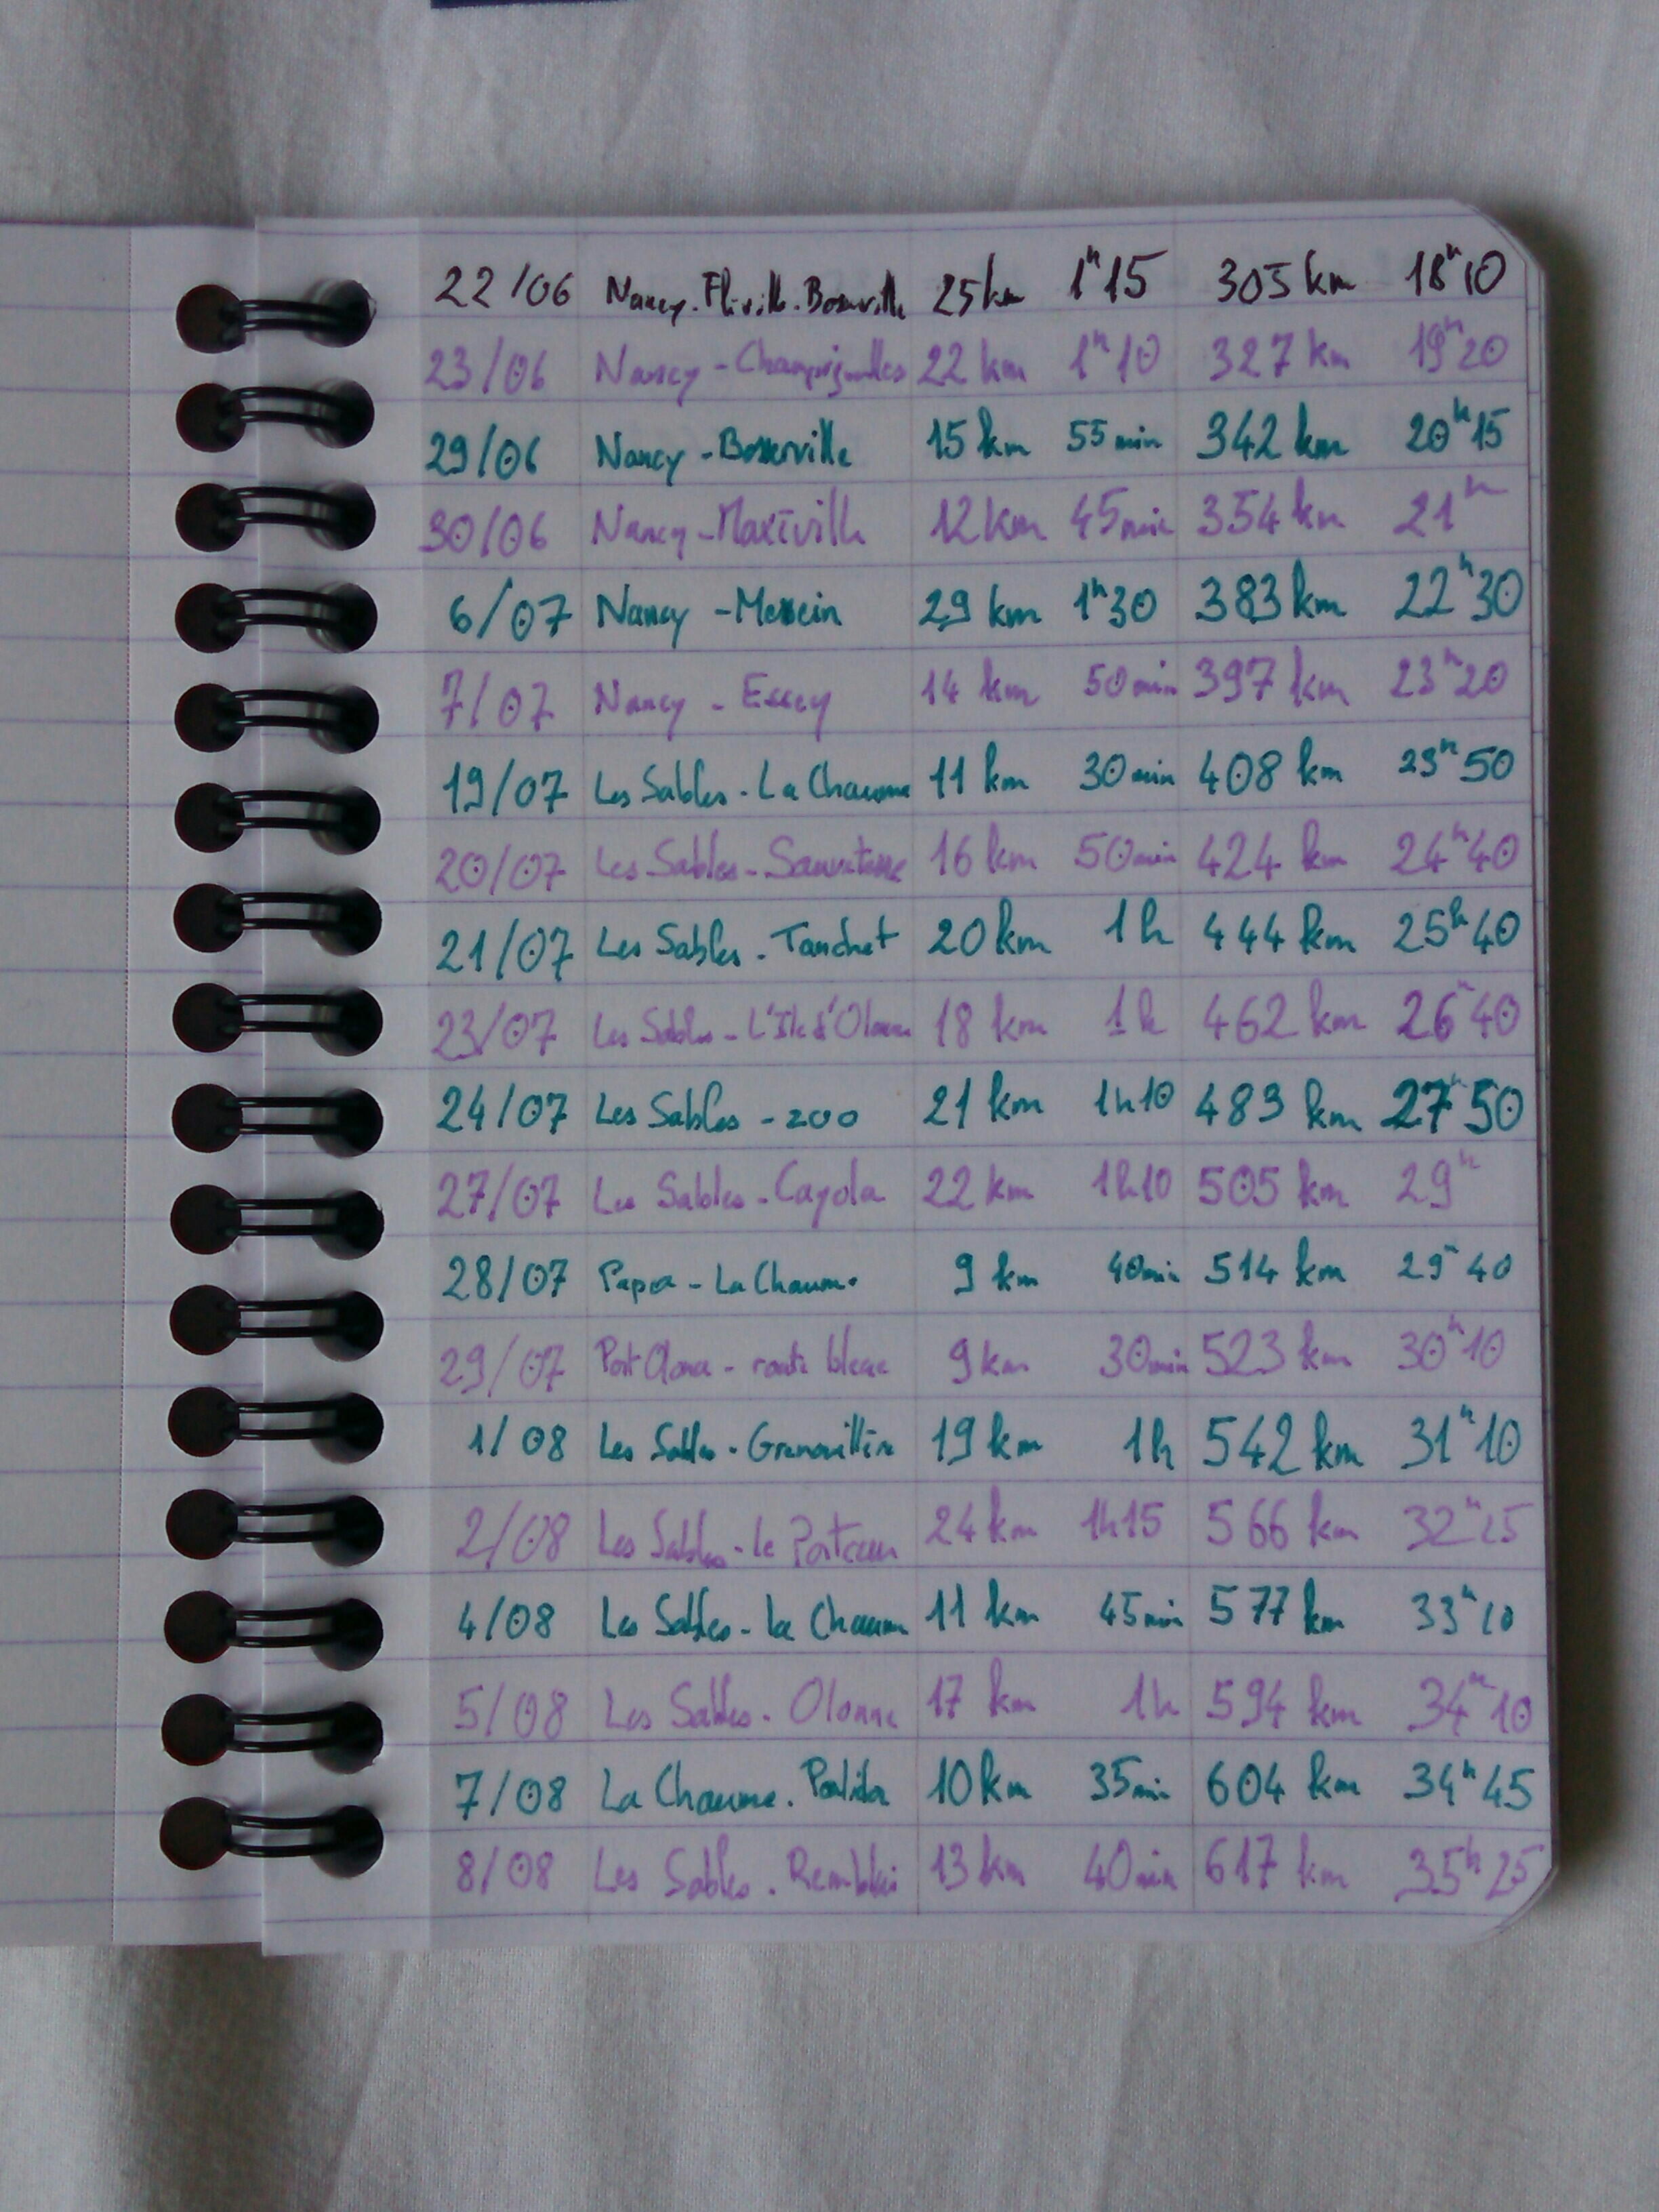 22/06 Nancy-Fléville-Bosserville 25 km 1h15 305 km 18h10
23/06 Nancy-Champigneulles 22 km 1h10 327 km 19h20
29/06 Nancy-Bosserville 15 km 55min 342 km 20h15
30/06 Nancy-Maxéville 12 km 45min 354 km 21h
6/07 Nancy-Messein 29 km 1h30 383 km 22h30
7/07 Nancy-Essey 14 km 50min 397 km 23h20
19/07 Les Sables-La Chaume 11 km 30min 408 km 23h50
20/07 Les Sables-Sauveterre 16 km 50min 424 km 24h40
21/07 Les Sables-Tanchet 20 km 1h 444 km 25h40
23/07 Les Sables-L'Ile d'Olonne 18 km 1h 462 km 26h40
24/07 Les Sables-zoo 21 km 1h10 483 km 27h50
27/07 Les Sables-Cayola 22 km 1h10 505 km 29h
28/07 La Chaume 9 km 40min 514 km 29h40
29/07 Port Olona-route bleue 9 km 30min 523 km 30h10
1/08 Les Sables-Grenouillère 19 km 1h 542 km 31h10
2/08 Les Sables-le Poiteau 24 km 1h15 566 km 32h25
4/08 Les Sables-La Chaume 11 km 45min 577 km 33h10
5/08 Les Sables-Olonne 17 km 1h 594 km 34h10
7/08 La Chaume 10 km 35min 604 km 34h45
8/08 Les Sables-Remblai 13 km 40min 617 km 35h25